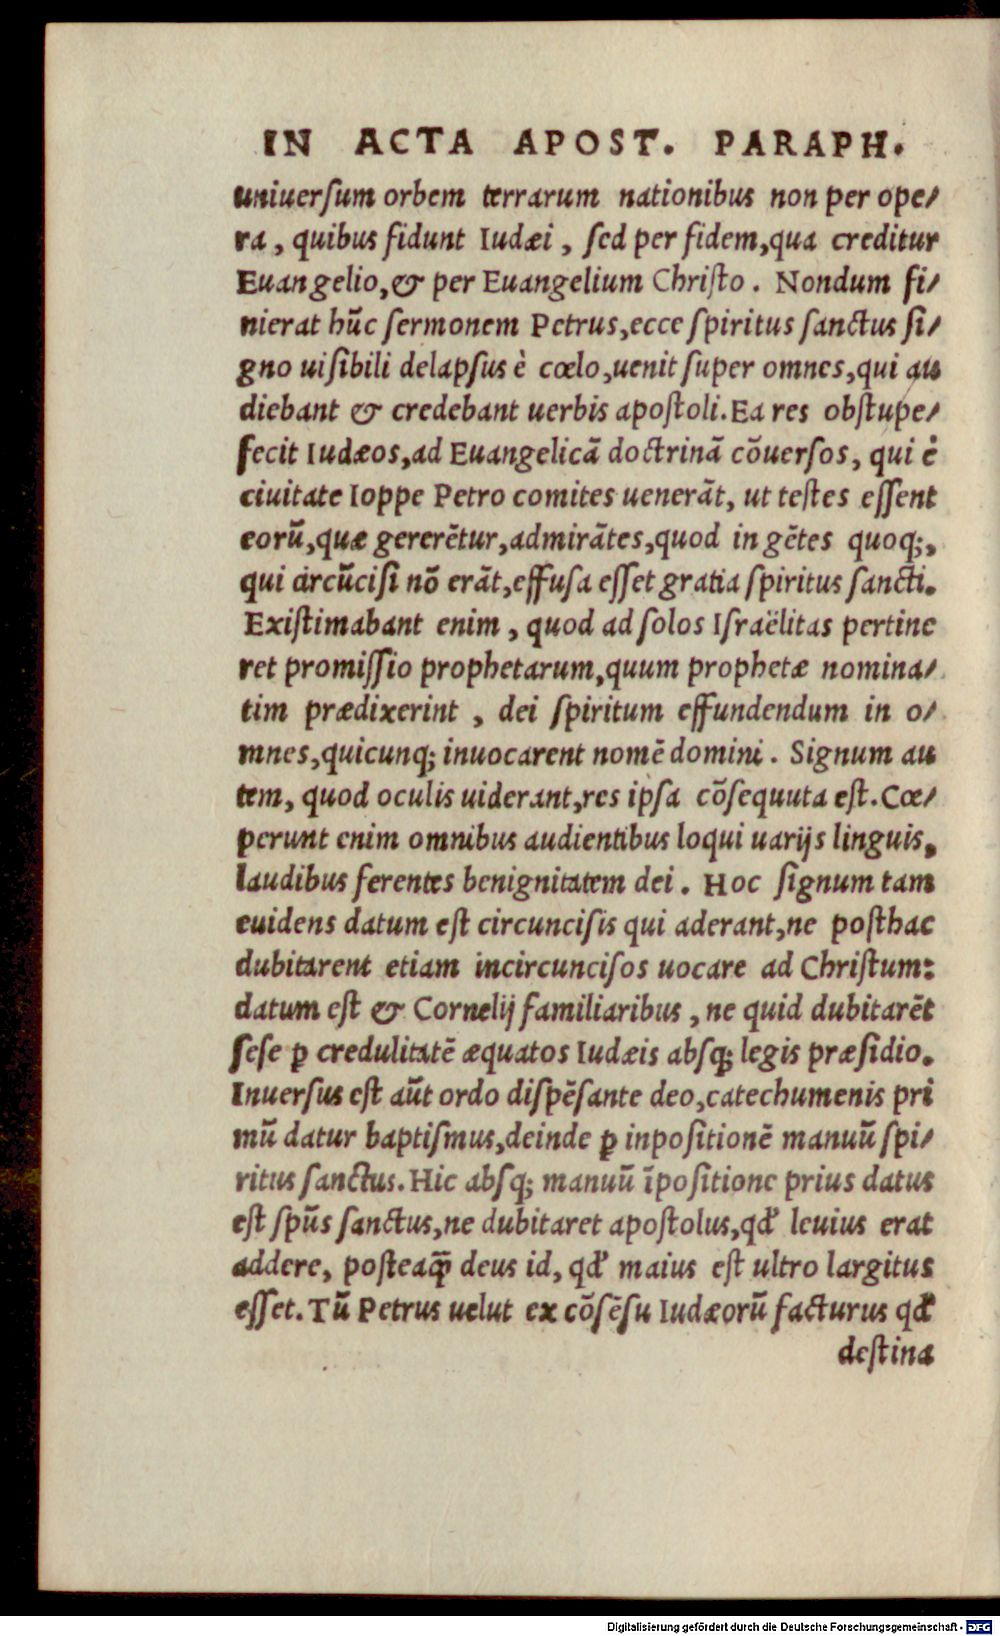 IN ACTA APOST. PARAPH.
uniuerſum orbem terrarum nationibus non per ope/
ra, quibus fidunt Iudæi, ſed per fidem, qua creditur
Euangelio, & per Euangelium Chriſto. Nondum fi/
nierat hūc ſermonem Petrus, ecce ſpiritus ſanctus ſi/
gno uiſibili delapſus è cœlo, uenit ſuper omnes, qui au
diebant & credebant uerbis apoſtoli. Ea res obſtupe/
fecit Iudæos, ad Euangelicā doctrinā cōuerſos, qui è
ciuitate Ioppe Petro comites uenerāt, ut teſtes eſſent
eorū, quæ gererētur, admirātes, quod in gētes quoq;,
qui circūciſi nō erāt, effuſa eſſet gratia ſpiritus ſancti.
Exiſtimabant enim, quod ad ſolos Iſraëlitas pertine
ret promiſſio prophetarum, quum prophetæ nomina/
tim prædixerint, dei ſpiritum effundendum in o/
mnes, quicunq; inuocarent nomē domini. Signum au
tem, quod oculis uiderant, res ipſa cōſequuta eſt. Cœ/
perunt enim omnibus audientibus loqui uarijs linguis,
laudibus ferentes benignitatem dei. Hoc ſignum tam
euidens datum eſt circunciſis qui aderant, ne poſthac
dubitarent etiam incircunciſos uocare ad Chriſtum:
datum eſt & Cornelij familiaribus, ne quid dubitarēt
ſeſe ꝑ credulitatē æquatos Iudæis abſq; legis præſidio.
Inuerſus eſt aūt ordo diſpēſante deo, catechumenis pri
mū datur baptiſmus, deinde ꝑ inpoſitionē manuū ſpi/
ritus ſanctus. Hic abſq; manuū īpoſitione prius datus
eſt ſpūs ſanctus, ne dubitaret apoſtolus, qd' leuius erat
addere, poſteaq̄ deus id, qd' maius eſt ultro largitus
eſſet. Tū Petrus uelut ex cōſēſu Iudæorū facturus qd'
deſtina
Digitalisierung gefördert durch die Deutsche Forschungsgemeinschaft - DFG